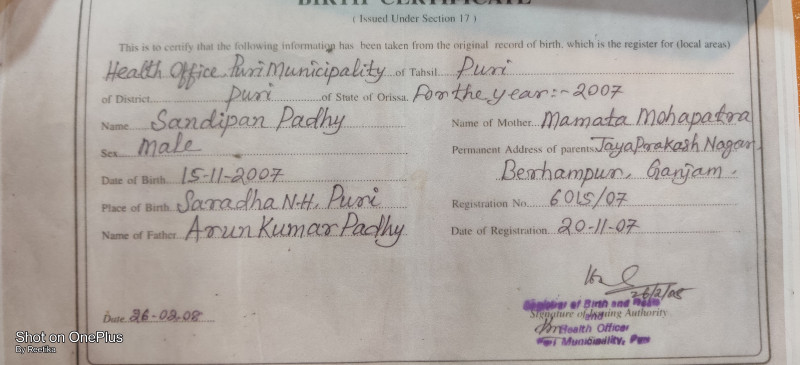 BIRTH CERTIFICATE
( Issued Under Section 17 )
This is to certify that the following information has been taken from the original record of birth, which is the register for (local areas)
Health Office, Puri Municipality of Tahsil Puri
of District Puri of State of Orissa. For the year:- 2007
Name Sandipan Padhy
Name of Mother Mamata Mohapatra
Sex Male
Permanent Address of parents JayaPrakash Nagar,
Berhampur, Ganjam.
Date of Birth 15-11-2007
Place of Birth Saradha N.H. Puri
Registration No. 6015/07
Name of Father Arun Kumar Padhy
Date of Registration 20-11-07
26/2/08
Registrar of Birth and
Signature of Issuing Authority
and
Health Officer
Puri Municipality, Puri
Date 26-02.08
Shot on OnePlus
By Reetika